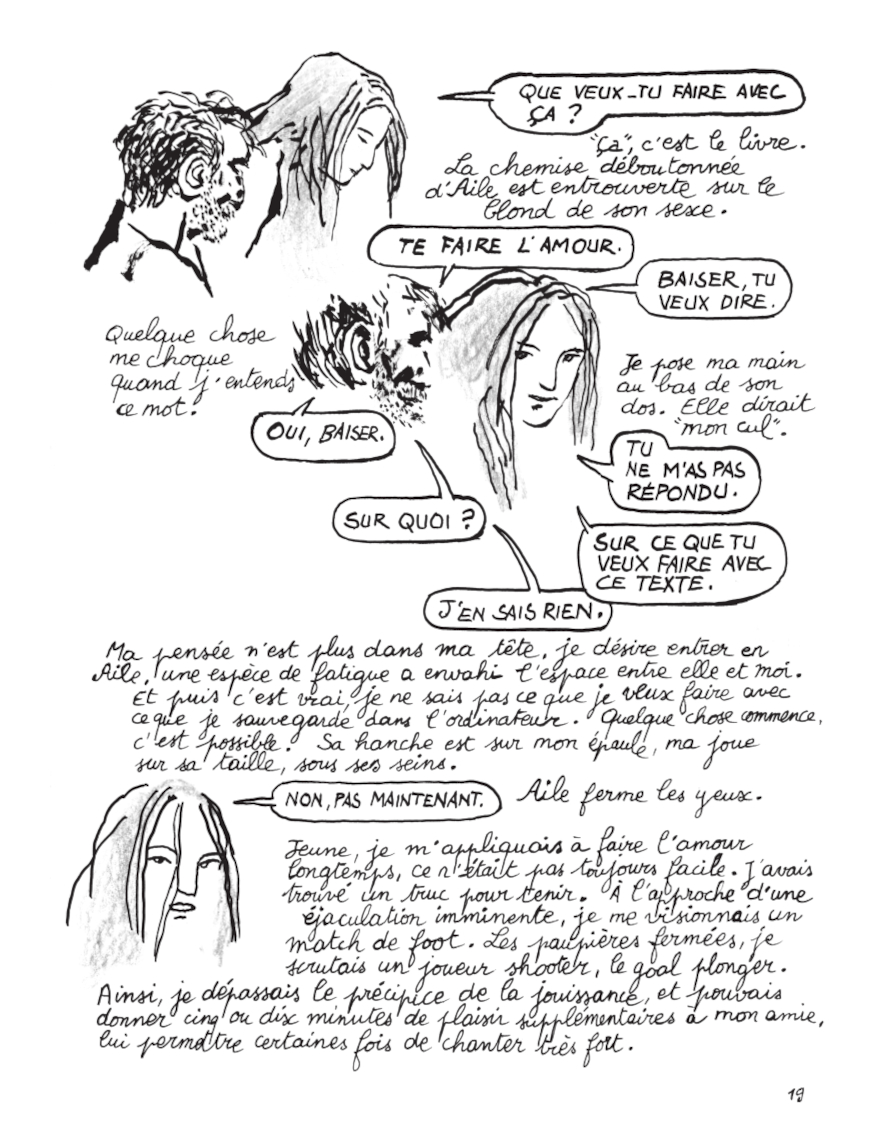 QUE VEUX-TU FAIRE AVEC
ÇA ?
"Ça", c'est le livre.
La chemise déboutonnée
d'Aile est entrouverte sur le
blond de son sexe.
TE FAIRE L'AMOUR.
BAISER, TU
VEUX DIRE.
Quelque chose
me choque
quand j'entends
ce mot.
OUI, BAISER.
Je pose ma main
au bas de son
dos. Elle dirait
"mon cul".
TU
NE M'AS PAS
RÉPONDU.
SUR QUOI ?
SUR CE QUE TU
VEUX FAIRE AVEC
CE TEXTE.
J'EN SAIS RIEN.
Ma pensée n'est plus dans ma tête, je désire entrer en
Aile, une espèce de fatigue a envahi l'espace entre elle et moi.
Et puis c'est vrai, je ne sais pas ce que je veux faire avec
ce que je sauvegarde dans l'ordinateur. Quelque chose commence,
c'est possible. Sa hanche est sur mon épaule, ma joue
sur sa taille, sous ses seins.
NON, PAS MAINTENANT.
Aile ferme les yeux.
Jeune, je m'appliquais à faire l'amour
longtemps, ce n'était pas toujours facile. J'avais
trouvé un truc pour tenir. À l'approche d'une
éjaculation imminente, je me visionnais un
match de foot. Les paupières fermées, je
scrutais un joueur shooter, le goal plonger.
Ainsi, je dépassais le précipice de la jouissance, et pouvais
donner cinq ou dix minutes de plaisir supplémentaires à mon amie,
lui permettre certaines fois de chanter très fort.
19